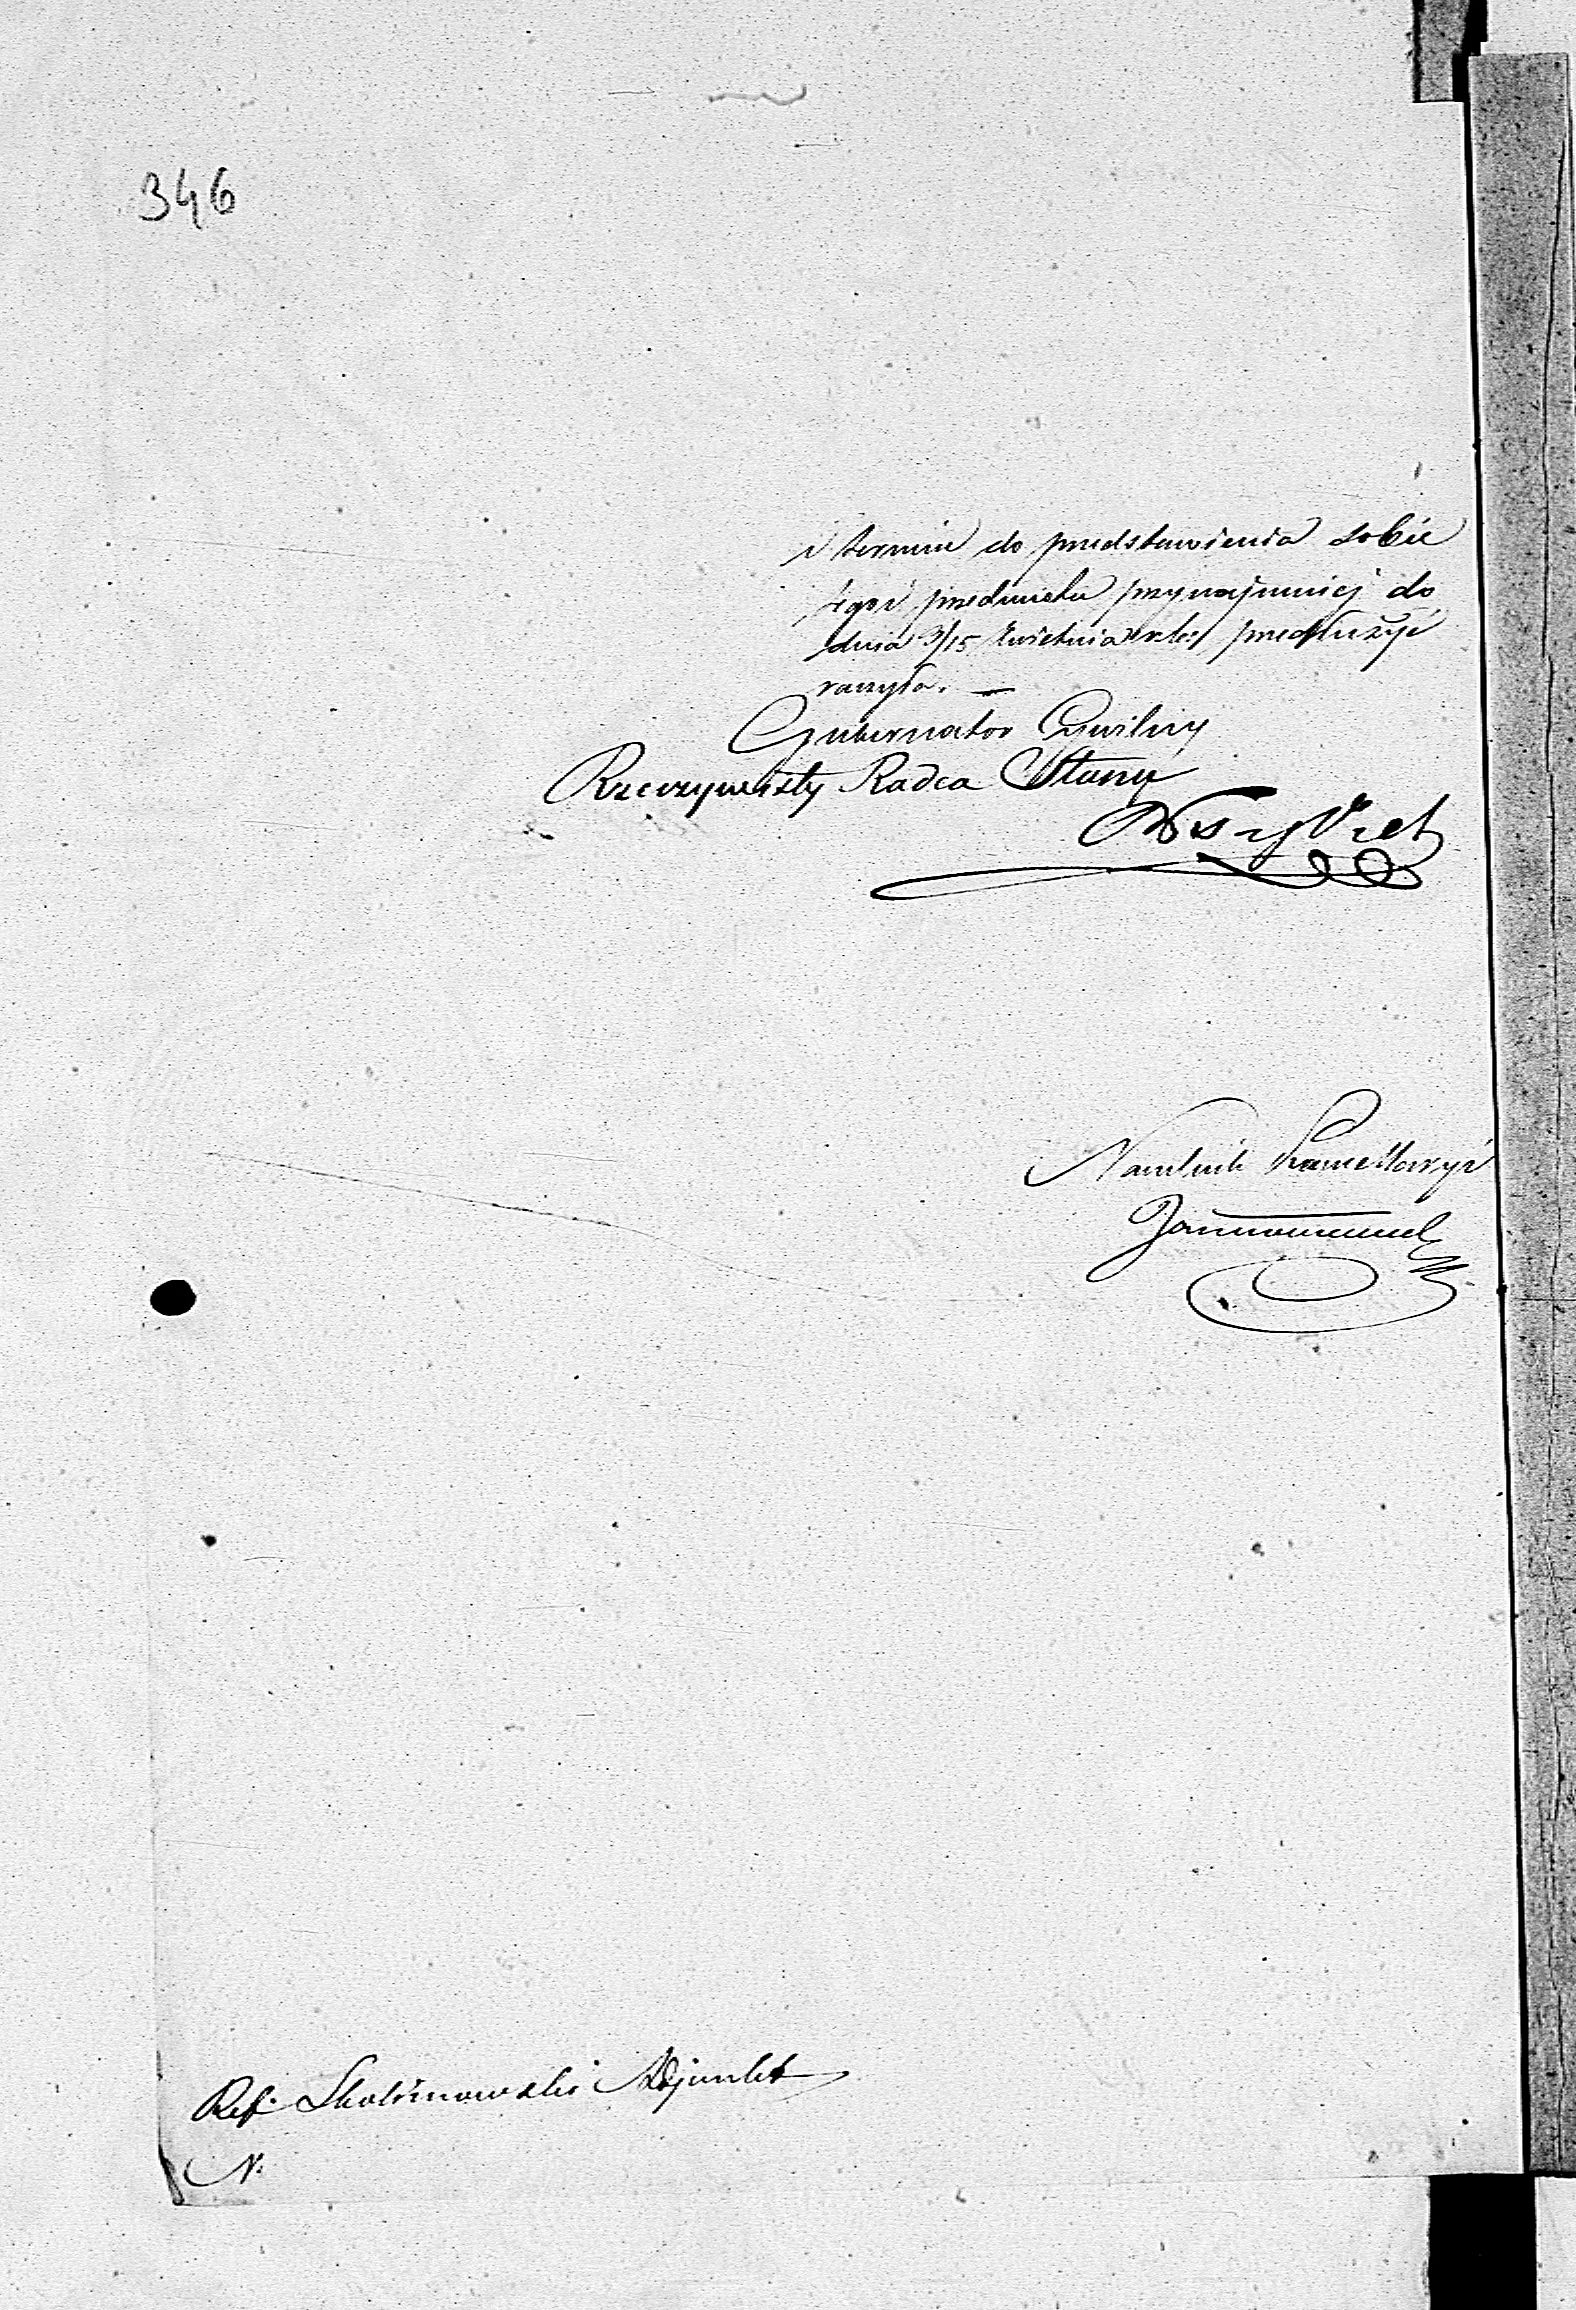 346
i termin do przedstawienia sobie
tego przedmiotu przynajmniej do
dnia 3/15 Kwietnia r. b. przedłużyć
raczyła. —
Gubernator Cywilny
Rzeczywisty Radca Stanu
Naczelnik Kancellaryi
Ref. Skolimowski Adjunkt
N: